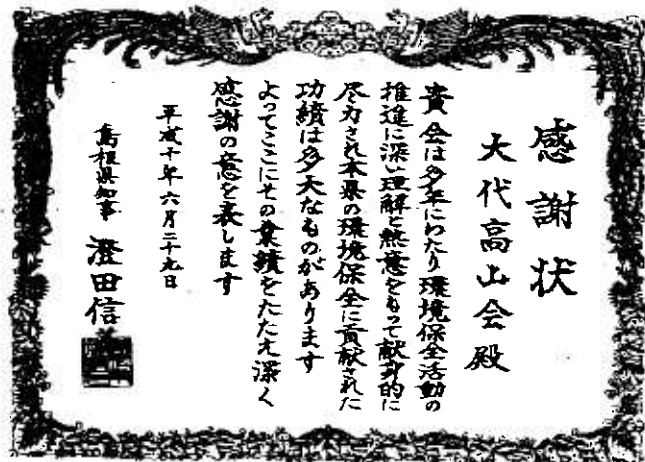 感謝状
大代高山会殿
貴会は多年にわたり環境保全活動の
推進に深い理解と熱意をもって献身的に
尽力され本県の環境保全に貢献された
功績は多大なものがあります
よってここにその業績をたたえ深く
感謝の意を表します
平成十年六月二十九日
島根県知事 澄田信義